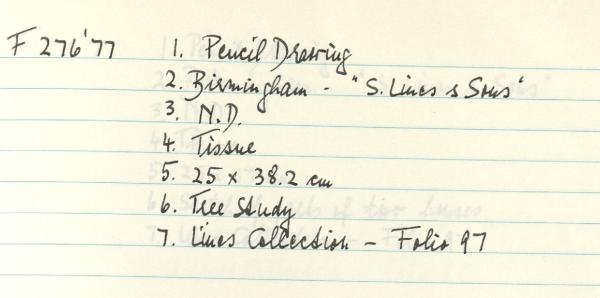 F 276'77 1. Pencil Drawing
2. Birmingham - "S. Lines & Sons"
3. N.D.
4. Tissue
5. 25 x 38.2 cm
6. Tree Study
7. Lines Collection - Folio 97